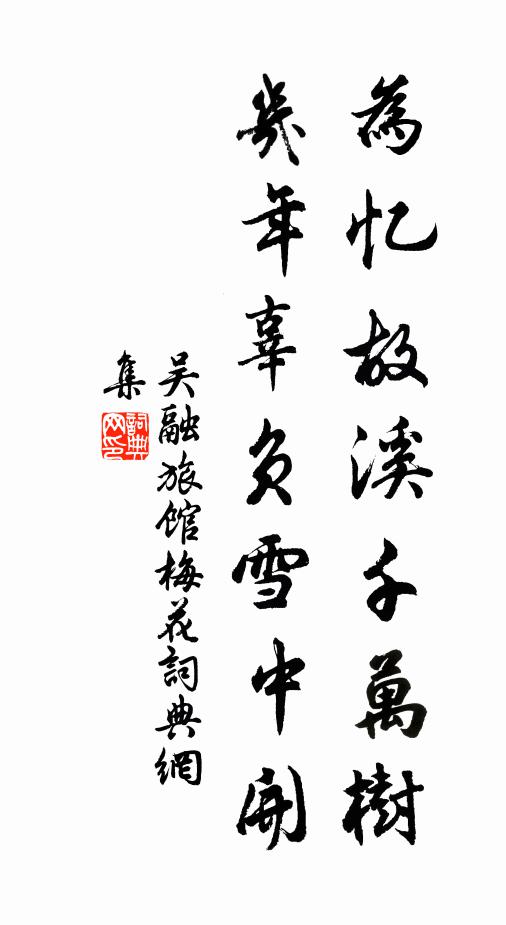 為忆故溪千萬樹
幾年辜负雪中開
吴融旅馆梅花詞典網
集
詞典网印